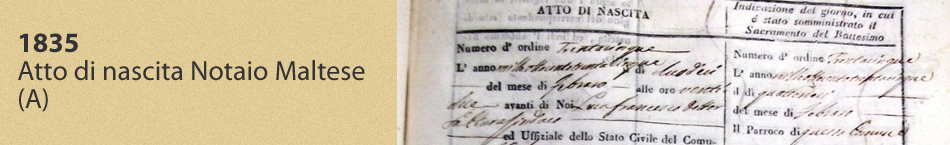 1835
Atto di nascita Notaio Maltese
(A)
ATTO DI NASCITA
Numero d' ordine Trentacinque
L' anno mille ottocento trentacinque di dodici
del mese di febraro alle ore venti
due avanti di Noi Luca Francesco
Sindaco
ed Uffiziale dello Stato Civile del Comu-
Indicazione del giorno, in cui
è stato somministrato il
Sacramento del Battesimo
Numero d' ordine Trentacinque
L' anno mille ottocento trentacinque
il dì quattordici
del mese di febraro
Il Parroco di questa Comune